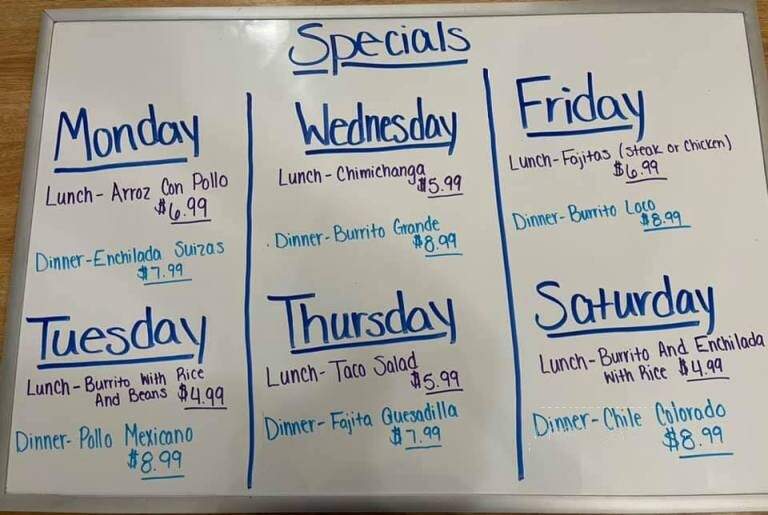 Specials
Monday
Lunch- Arroz Con Pollo
$6.99
Dinner-Enchilada Suizas
$7.99
Tuesday
Lunch- Burrito With Rice
And Beans $4.99
Dinner- Pollo Mexicano
$8.99
Wednesday
Lunch- Chimichanga
$5.99
Dinner-Burrito Grande
$8.99
Thursday
Lunch- Taco Salad
$5.99
Dinner- Fajita Quesadilla
$7.99
Friday
Lunch-Fajitas (Steak or Chicken)
$6.99
Dinner-Burrito Loco
$8.99
Saturday
Lunch-Burrito And Enchilada
With Rice $4.99
Dinner-Chile Colorado
$8.99